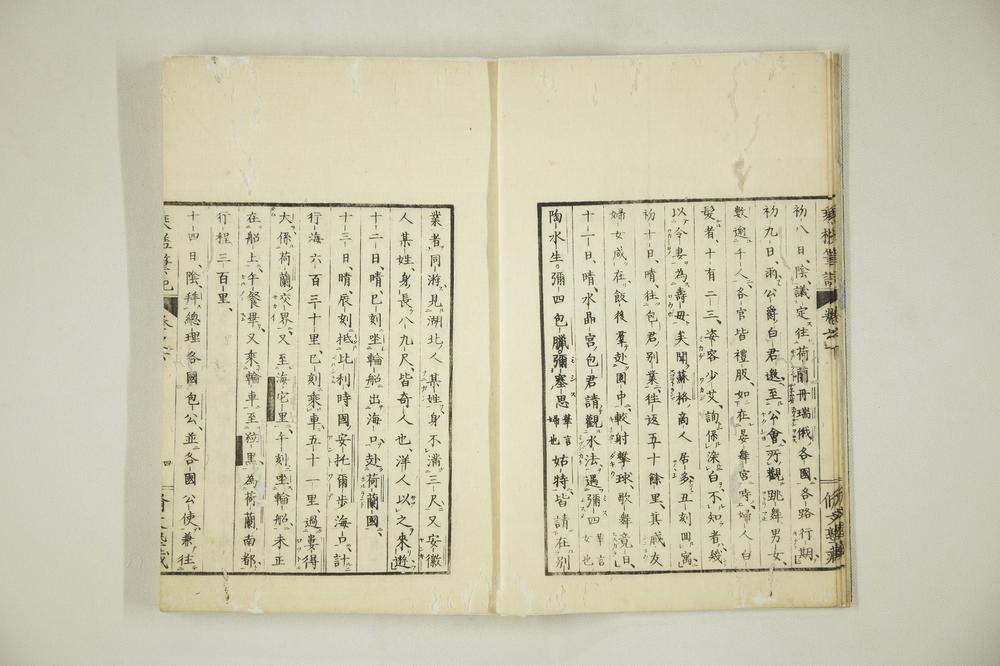 初八日、陰、議定往荷蘭丹瑞俄各國、各路行期、
初九日、雨、公爵白君邀、至公會、所觀跳舞男女
數逾千人、各官皆禮服、如在晏舞宮時、婦人白
髮者、十有二三、姿容少艾、詢係染白、不知者、幾
以令妻為壽毋矣、聞蘇格商人居多、丑刻回寓、
初十日、晴、往包君別業、往返五十餘里、其戚友
婦女咸在、飯後羣赴園中、較射擊球、歌舞竟日、
十一日、晴、水晶宮包君請觀水法、遇彌四華言女也
陶水生。彌四包臘、彌塞思華言婦也姑特、皆請在別
業者、同游、見湖北人某姓、身不滿三尺、又安徽
人某姓、身長八九尺、皆奇人也、洋人以之來遊、
十二日、晴、巳刻坐輪船出海口、赴荷蘭國、
十三日、晴、辰刻抵比利時國、安托爾步海口、計
行海六百三十里、巳刻乘車、五十一里、過婁得
大、係荷蘭交界、又至海它里、午刻坐輪船、未正
在船上、午餐畢、又乘輪車、至
為荷蘭南都、
行程三百里、
十四日、陰、拜總理各國包公、並各國公使、兼往
四